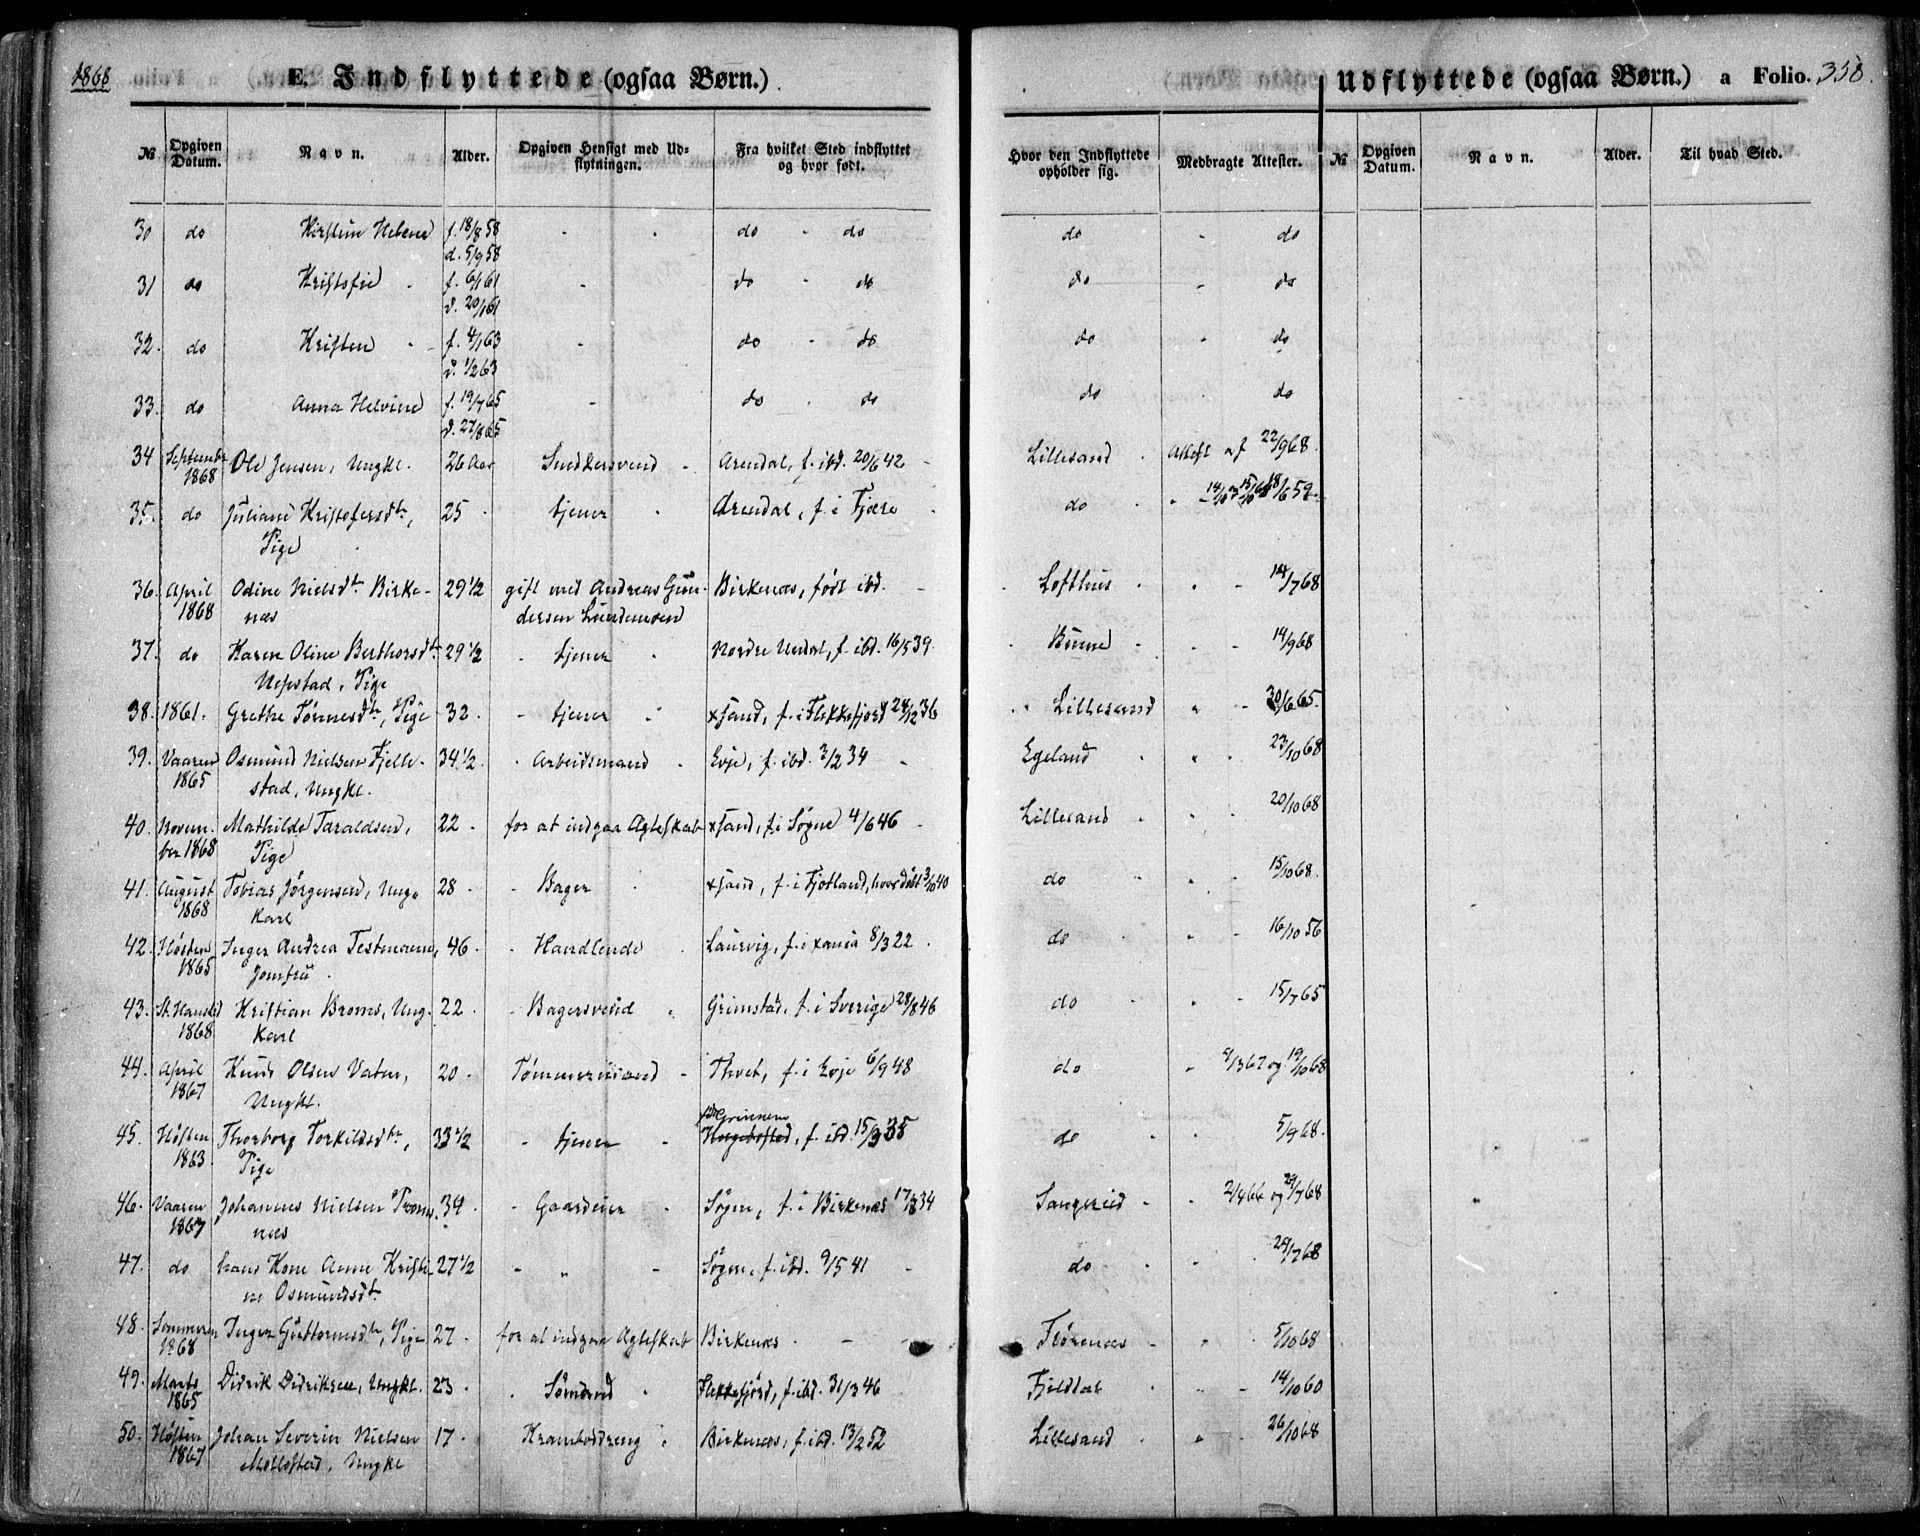 1868
E. Indflyttede (ogsaa Børn.)
Udflyttede (ogsaa Børn.) a Folio. 358.
№ Opgiven Datum. Navn. Alder. Opgiven Hensigt med Udflytningen. Fra hvilket Sted indflyttet og hvor født. Hvor den Indflyttede opholder sig. Medbragte Attester. № Opgiven Datum. Navn. Alder. Til hvad Sted.
30 do Kirstine Helene f. 18/8 58 - - do - do do - do
d. 5/9 58
31 do Kristofie - f. 6/1 61 - do - do do - do
d. 20/1 61
32. do Kristen - f. 4/1 63 - do - do do - do
d. 1/2 63
33. do Anna Helvine f. 19/7 65 - do - do do - do
d. 27/8 65
34 September Ole Jensen, Ungkl. 26 Aar Snedkersvend - Arendal, f. ibd. 20/6 42 - Lillesand - Attest af 22/9 68.
1868
35. do Juliane Kristofersdtr, 25 - tjener - Arendal, f. i Fjære - do -
Pige
36. April Odine Nielsdtr Birke- 29 1/2 gift med Andreas Gun- Birkenæs, født ibd. - Lofthus - - - 14/7 68
1868 næs dersen Lundemoen
37. do Karen Oline Berthorsdtr 29 1/2 - tjener - Nordre Undal, f. ibd. 16/5 39. - - - 14/9 68
Pige
38. 1861. Grethe Tønnesdtr, Pige 32. - tjener - xsand, f. i Flekkefjord 28/12 36 Lillesand - - 30/6 65.
39. Vaaren Osmund Nielsen Fjelle- 34 1/2. - Arbeidsmand - Evje, f. ibd. 3/2 34 - Egeland - - 23/10 68
1865 stad, Ungkl.
40. Novem- Mathilde Taraldsen, 22 - for at indgaa Ægteskab xsand, f. i Søgne 4/6 46 - Lillesand - - 20/10 68
ber 1868 Pige
41. August Tobias Jørgensen, Ung- 28 - - Bager - xsand, f. i Fjotland, hvor døbt 3/10 40 do - - 15/10 68.
1868 karl
42. Høsten Inger Andrea Testmann, 46 - - Handlende - Laurvig, f. i xania 8/3 22. do - - 16/10 56
1865 Jomfru.
43. St. Hanstid Kristian Broms, Ung- 22. - Bagersvend - Grimstad, f. i Sverige 28/8 46 do - - 15/7 65
1868 karl
44. April Knud Olsen Vatne, 20 - Tømmermand - Thvet, f. i Evje 6/9 48 do - 9/3 67 og 19/10 68
1867 Ungkl.
45. Høsten Thorborg Torkildsdtr, 33 1/2 - tjener - f. ibd. 15/3 35 do - - 5/9 68.
1863 Pige
46. Vaaren Johannes Nielsen Trom- 34 - Gaardeier - Søgne, f. i Birkenæs 17/8 34 Sangereid - 2/4 66 og 29/7 68
1867 næs
47. do hans Kone Anne Kristi- 27 1/2 - " - Søgne, f. ibd. 9/5 41 - do - - 29/7 68
ne Osmundsdtr
48. Sommeren Inger Guttormsdtr, Pige 27. for at indgaa Ægteskab Birkenæs - - - - - 5/10 68
1868
49. Marts Didrik Didriksen, Ungkl. 23 - Sømand - Flekkefjord, f. ibd. 31/3 46 Fjeldtat - - 14/10 60
1865
50. Høsten Johan Severin Nielsen 17 - Krambodreng - Birkenæs, f. ibd. 13/2 52 Lillesand - - 26/10 68
1867 Ungkl